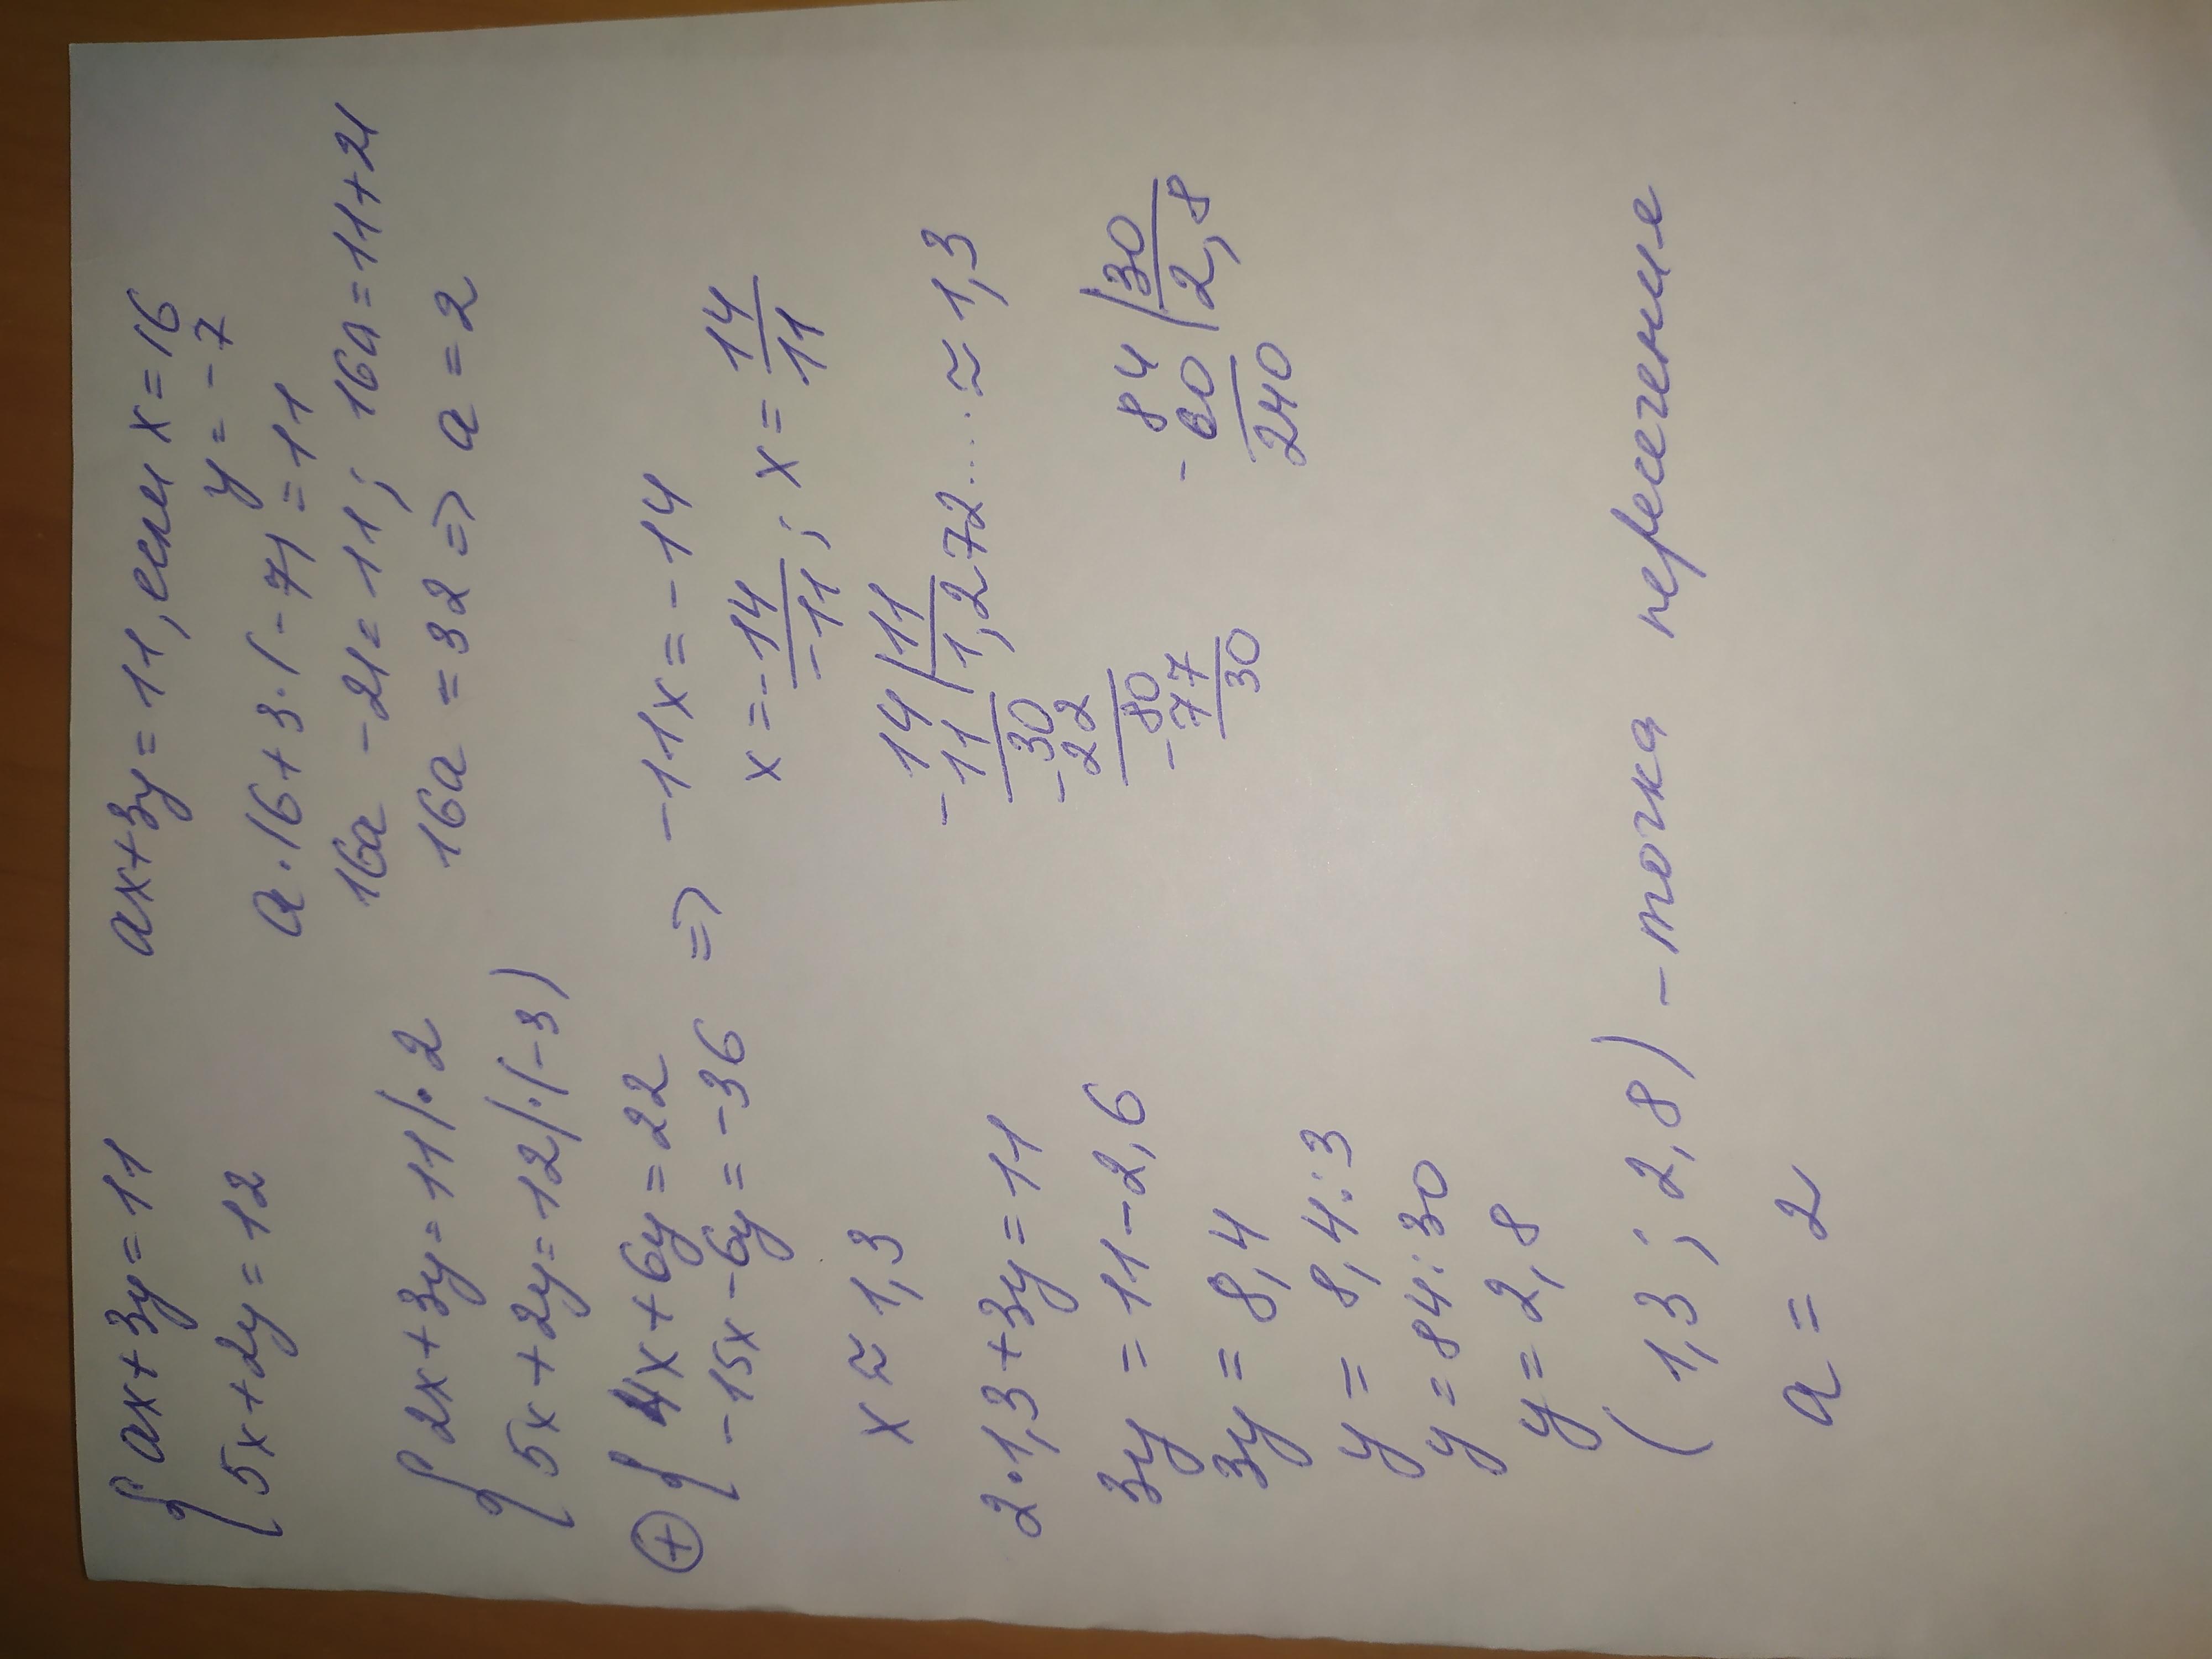 { ax+3y=11      ax+3y=11, если x=16
5x+2y=12      y=-7
a·16+3·(-7)=11
16a-21=11; 16a=11+21
16a=32=> a=2
{ 2x+3y=11|·2
5x+2y=12|·(-3)
⊕ { 4x+6y=22 => -11x=-14
-15x-6y=-36
x=-14/-11; x=14/11
x≈1,3
14|11
-11 1,272....≈1,3
-30
22
-80
77
30
2·1,3+3y=11
3y=11-2,6
3y=8,4
y=8,4:3
y=84:30
y=2,8
84|30
-60 2,8
240
(1,3; 2,8) - точка пересечение
a=2